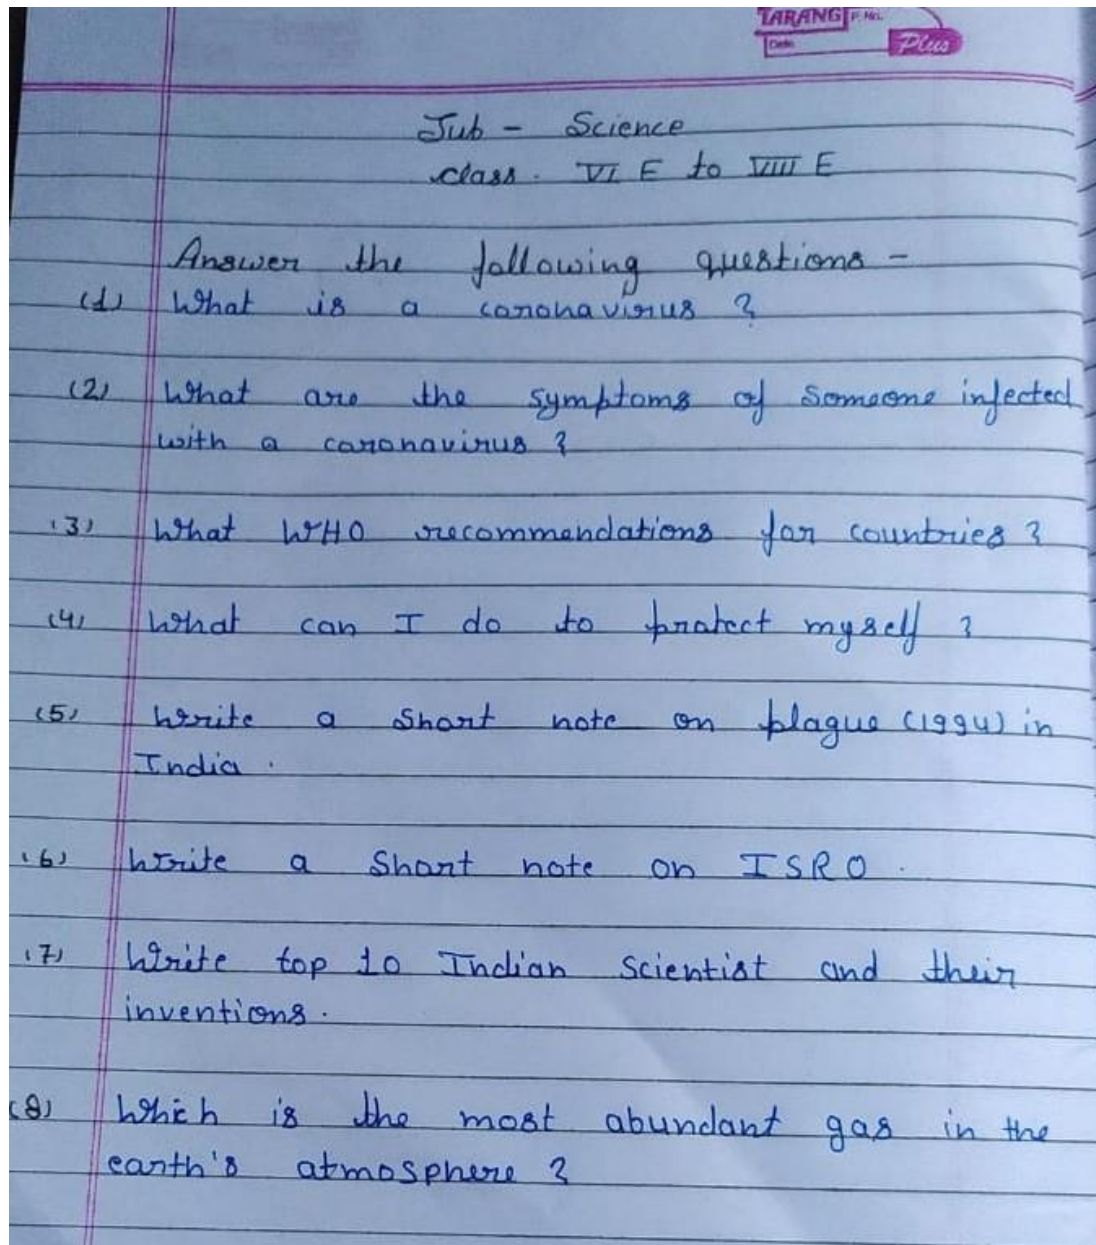 TARANG P. No.
Date Plus
Sub - Science
class. VI E to VIII E
Answer the following questions -
(1) What is a coronavirus ?
(2) What are the symptoms of someone infected
with a coronavirus ?
(3) What WHO recommendations for countries ?
(4) What can I do to protect myself ?
(5) Write a short note on plague (1994) in
India .
(6) Write a short note on ISRO .
(7) Write top 10 Indian scientist and their
inventions .
(8) Which is the most abundant gas in the
earth's atmosphere ?